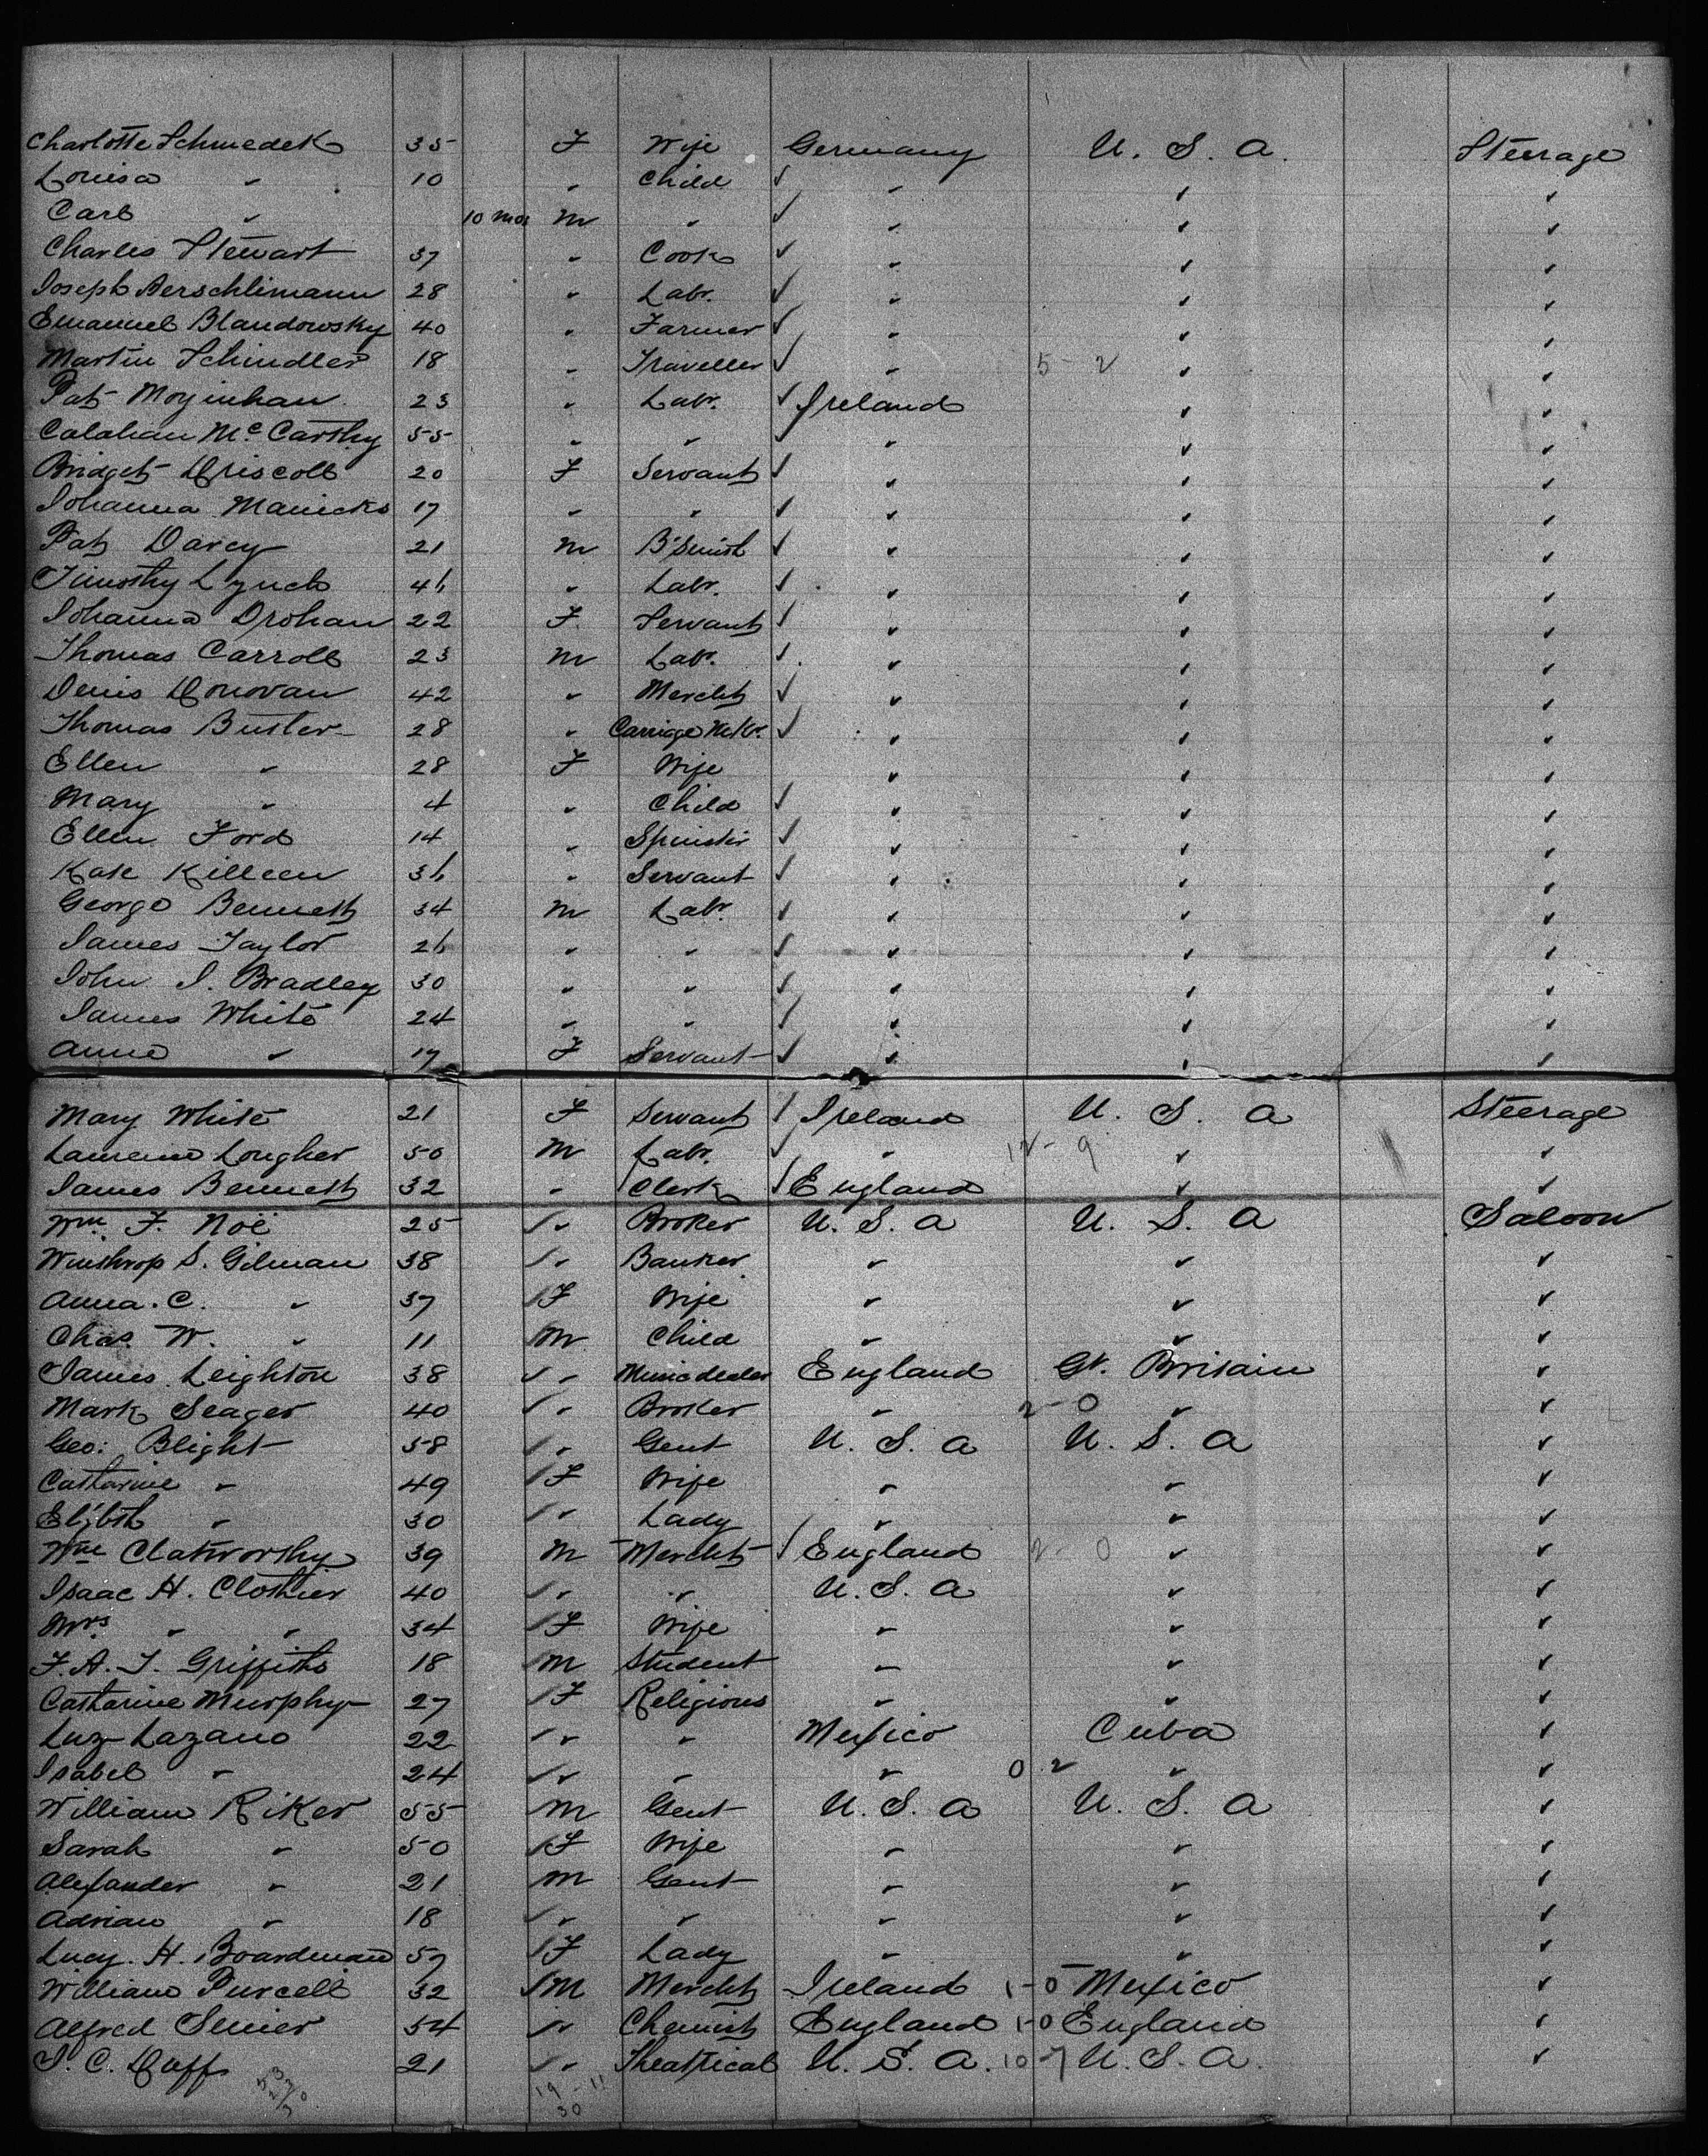 Charlotte Schmedek 35 F Wife Germany U. S. A. Steerage
Louisa " 10 " Child ✓ " " "
Carl " 10 mos M " ✓ " " "
Charles Stewart 37 " Cook ✓ " " "
Joseph Aerschlimann 28 " Labr. ✓ " " "
Emanuel Blandowsky 40 " Farmer ✓ " " "
Martin Schindler 18 " Traveller ✓ " 5 - 2 " "
Pat Moynihan 23 " Labr. ✓ Ireland " "
Calahan McCarthy 55 " " " " "
Bridget Driscoll 20 F Servant ✓ " " "
Johanna Manicks 17 " " ✓ " " "
Pat Darcy 21 M B'Smith ✓ " " "
Timothy Lynch 46 " Labr. ✓ " " "
Johanna Drohan 22 F. Servant ✓ " " "
Thomas Carroll 23 M Labr. ✓ " " "
Denis Donovan 42 " Mercht ✓ " " "
Thomas Butler 28 " Carriage Mkr. ✓ " " "
Ellen " 28 F Wife " " "
Mary " 4 " Child ✓ " " "
Ellen Ford 14 " Spinster ✓ " " "
Kate Killeen 36 " Servant ✓ " " "
George Bennett 34 M Labr. ✓ " " "
James Taylor 26 " " ✓ " " "
John J. Bradley 30 " " ✓ " " "
James White 24 " " ✓ " " "
Anne " 17 F Servant ✓ " " "
Mary White 21 F Servant ✓ Ireland U. S. A Steerage
Lawrence Lougher 50 M Labr. ✓ " 12 - 9 " "
James Bennett 32 " Clerk ✓ England " "
Wm. F. Noë 25 " Broker U. S. A U. S. A Saloon
Winthrop S. Gilman 38 " Banker " " "
Anna. C. " 37 F Wife " " "
Chas. W. " 11 M Child " " "
James Leighton 38 " Music dealer England Gt. Britain "
Mark Seager 40 " Broker " 2 - 0 " "
Geo: Blight 58 " Gent U. S. A U. S. A "
Catharine " 49 F Wife " " "
Eliz'bth " 30 " Lady " " "
Wm Clatworthy 39 M Mercht ✓ England 2 - 0 " "
Isaac H. Clothier 40 " " U. S. A " "
Mrs. " " 34 F Wife " " "
F. A. T. Griffiths 18 M Student " " "
Catharine Murphy 27 F Religious " " "
Luz Lazano 22 " " Mexico Cuba "
Isabel " 24 " " " 0 2 " "
William Riker 55 M Gent U. S. A U. S. A "
Sarah " 50 F Wife " " "
Alexander " 21 M Gent " " "
Adrian " 18 " " " " "
Lucy. H. Boardman 57 F Lady " " "
William Purcell 32 M Mercht Ireland 1-0 Mexico "
Alfred Senier 54 " Chemist England 1-0 England "
J. C. Duff 21 " Theatrical U. S. A. 10-7 U. S. A. "
19 - 11
30